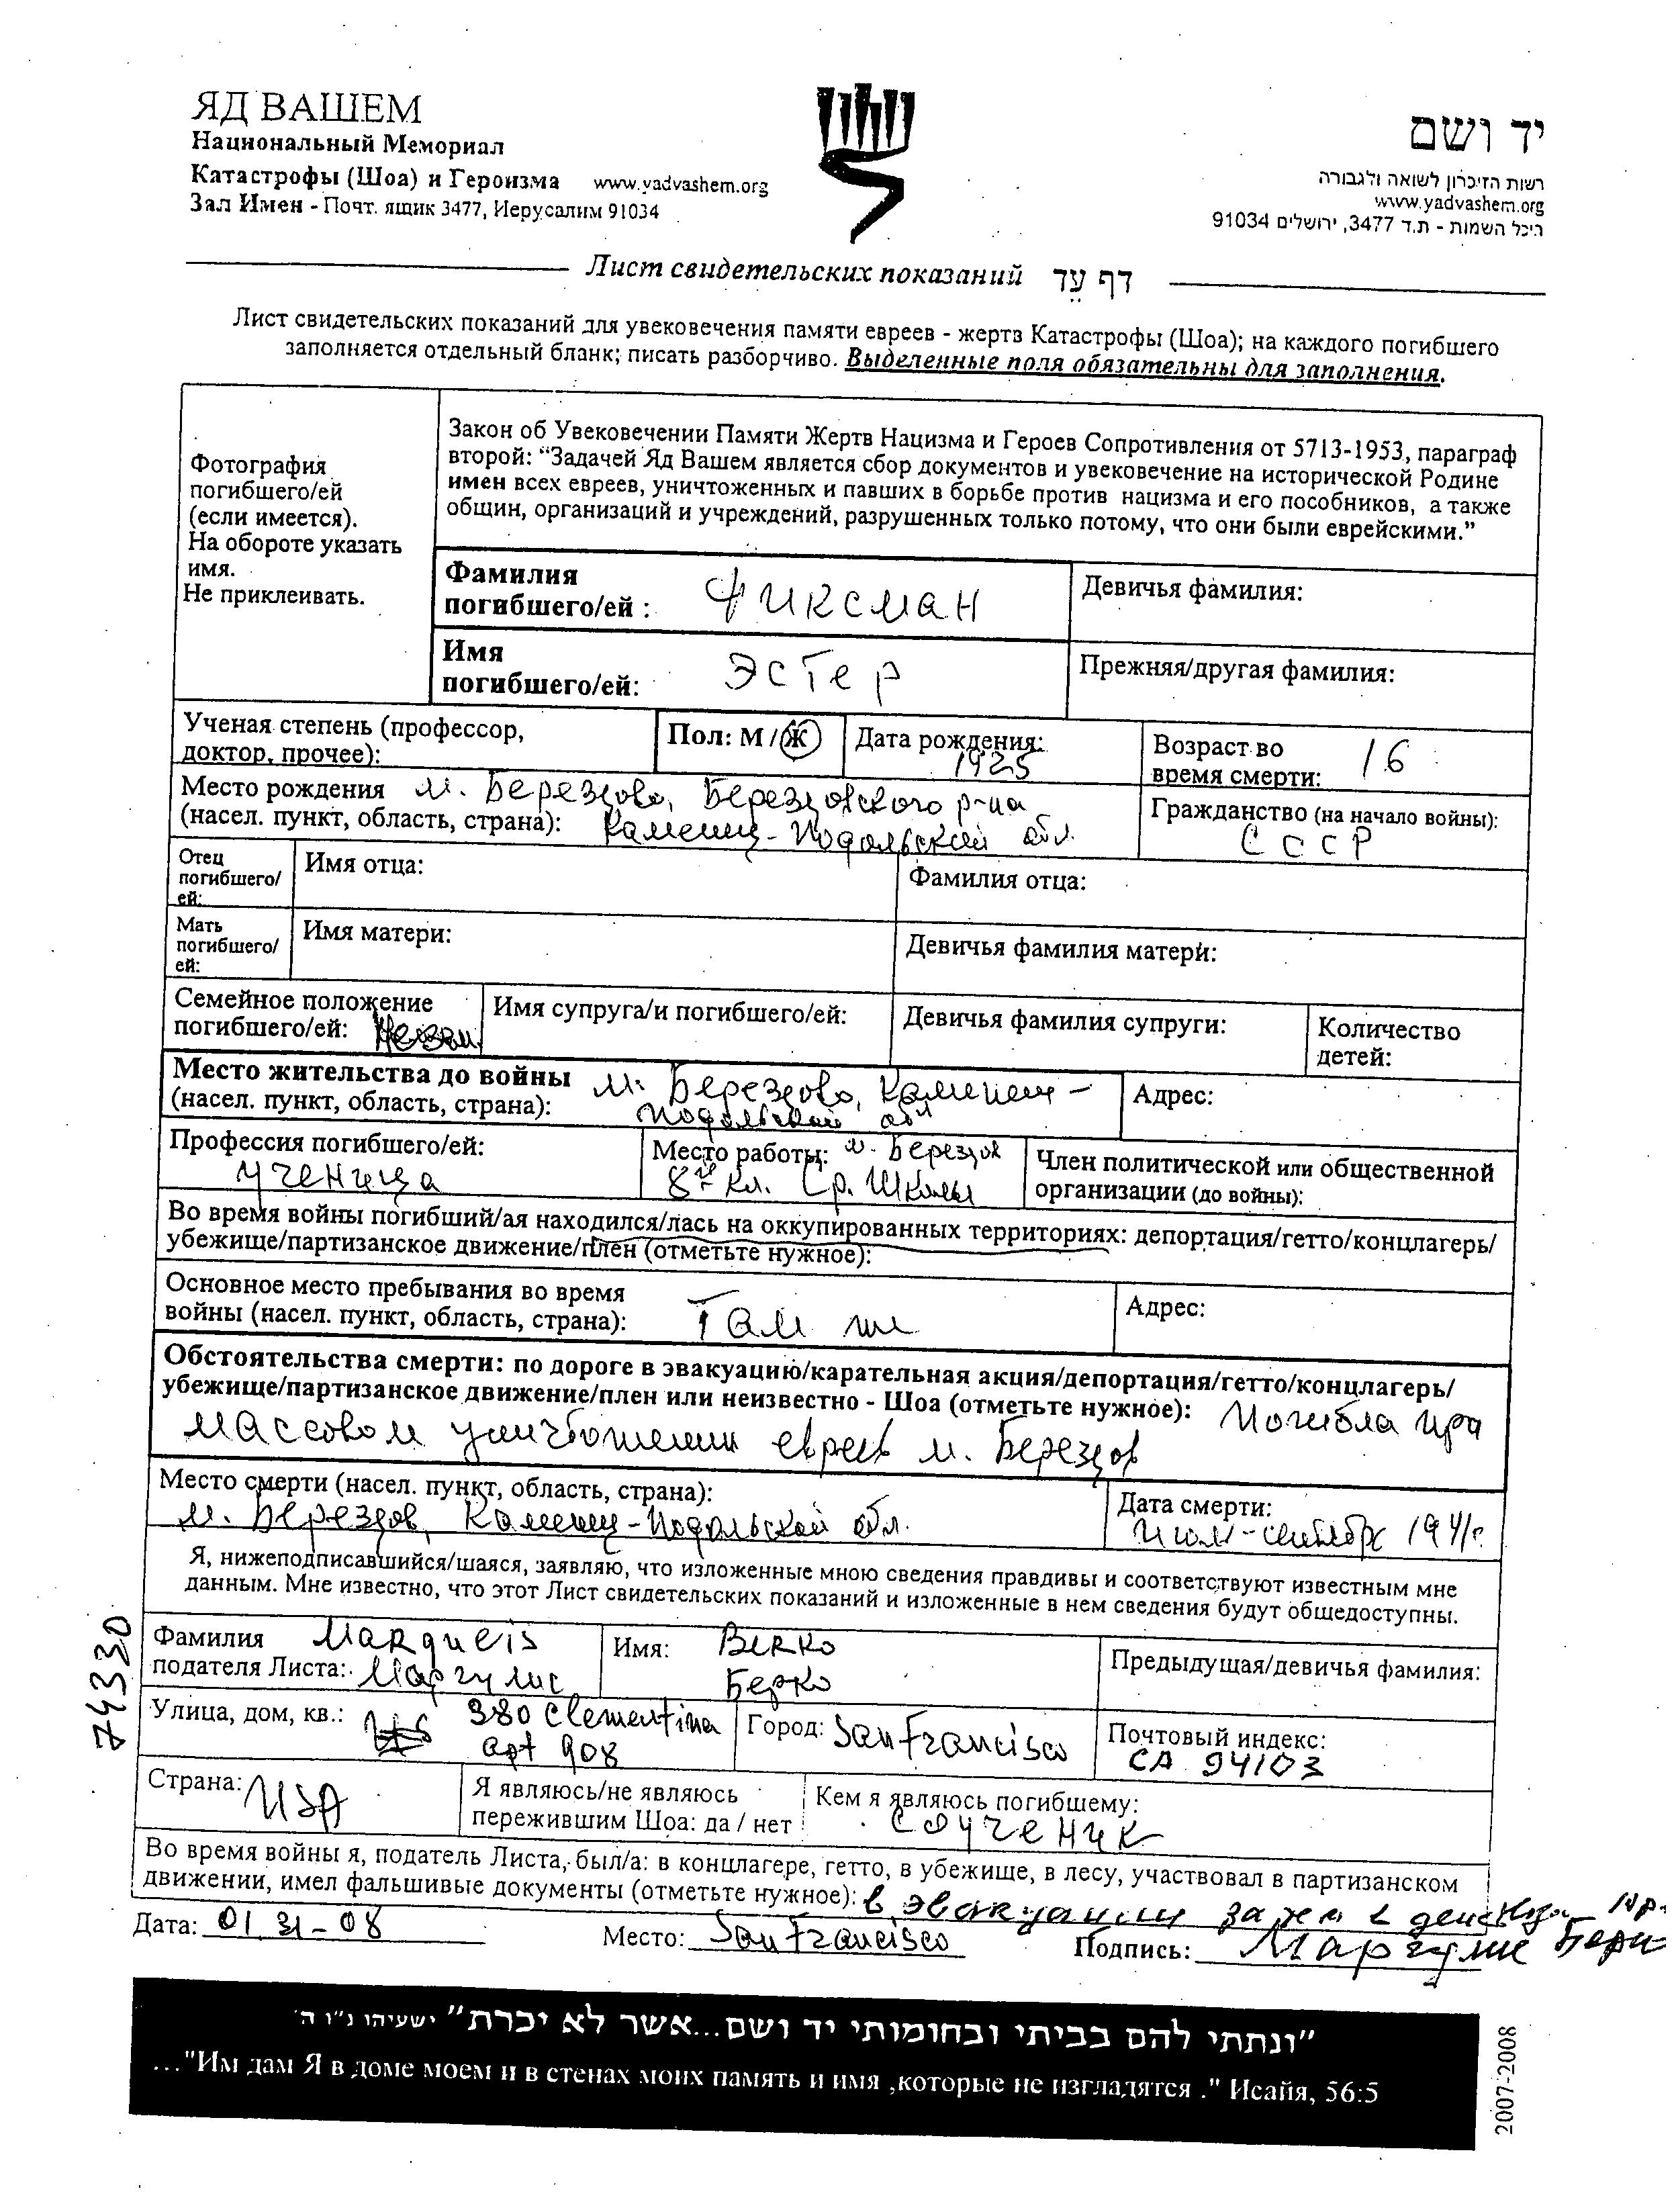 ЯД ВАШЕМ
Национальный Мемориал
Катастрофы (Шоа) и Героизма www.yadvashem.org
Зал Имен - Почт. ящик 3477, Иерусалим 91034
יד ושם
רשות הזיכרון לשואה ולגבורה
www.yadvashem.org
היכל השמות - ת.ד 3477, ירושלים 91034
Лист свидетельских показаний דף עֵד
Лист свидетельских показаний для увековечения памяти евреев - жертв Катастрофы (Шоа); на каждого погибшего
заполняется отдельный бланк; писать разборчиво. Выделенные поля обязательны для заполнения.
Фотография
погибшего/ей
(если имеется).
На обороте указать
имя.
Не приклеивать.
Закон об Увековечении Памяти Жертв Нацизма и Героев Сопротивления от 5713-1953, параграф
второй: “Задачей Яд Вашем является сбор документов и увековечение на исторической Родине
имен всех евреев, уничтоженных и павших в борьбе против нацизма и его пособников, а также
общин, организаций и учреждений, разрушенных только потому, что они были еврейскими.”
Фамилия
погибшего/ей : Фиксман
Девичья фамилия:
Имя
погибшего/ей: Эстер
Прежняя/другая фамилия:
Ученая степень (профессор,
доктор, прочее):
Пол: М / Ж
Дата рождения:
1925
Возраст во
время смерти: 16
Место рождения м. Березцово, Березцовского р-на
(насел. пункт, область, страна): Каменец-Подольской обл.
Гражданство (на начало войны):
СССР
Отец
погибшего/
ей:
Имя отца:
Фамилия отца:
Мать
погибшего/
ей:
Имя матери:
Девичья фамилия матери:
Семейное положение
погибшего/ей:
Имя супруга/и погибшего/ей:
Девичья фамилия супруги:
Количество
детей:
Место жительства до войны м. Березцово, Каменец-
(насел. пункт, область, страна): Подольской обл
Адрес:
Профессия погибшего/ей:
ученица
Место работы: м. Березцов
8й кл. Ср. Школы
Член политической или общественной
организации (до войны):
Во время войны погибший/ая находился/лась на оккупированных территориях: депортация/гетто/концлагерь/
убежище/партизанское движение/плен (отметьте нужное):
Основное место пребывания во время
войны (насел. пункт, область, страна): Там же
Адрес:
Обстоятельства смерти: по дороге в эвакуацию/карательная акция/депортация/гетто/концлагерь/
убежище/партизанское движение/плен или неизвестно - Шоа (отметьте нужное): Погибла при
массовом уничтожении евреев м. Березцов
Место смерти (насел. пункт, область, страна):
м. Березцов, Каменец-Подольской обл.
Дата смерти:
июль-сентябрь 1941г.
Я, нижеподписавшийся/шаяся, заявляю, что изложенные мною сведения правдивы и соответствуют известным мне
данным. Мне известно, что этот Лист свидетельских показаний и изложенные в нем сведения будут общедоступны.
74330
Фамилия Margueis
подателя Листа: Маргулис
Имя: Berko
Берко
Предыдущая/девичья фамилия:
Улица, дом, кв.: 380 Clementina
apt 908
Город: San Francisco
Почтовый индекс:
CA 94103
Страна: USA
Я являюсь/не являюсь
пережившим Шоа: да / нет
Кем я являюсь погибшему:
Соученик
Во время войны я, податель Листа, был/а: в концлагере, гетто, в убежище, в лесу, участвовал в партизанском
движении, имел фальшивые документы (отметьте нужное): в эвакуации затем в
Дата: 01 31-08 Место: San Francisco Подпись: Маргулис
"ונתתי להם בביתי ובחומותי יד ושם...אשר לא יכרת" ישעיהו נ"ו ה'
..."Им дам Я в доме моем и в стенах моих память и имя ,которые не изгладятся ." Исайя, 56:5
2007-2008